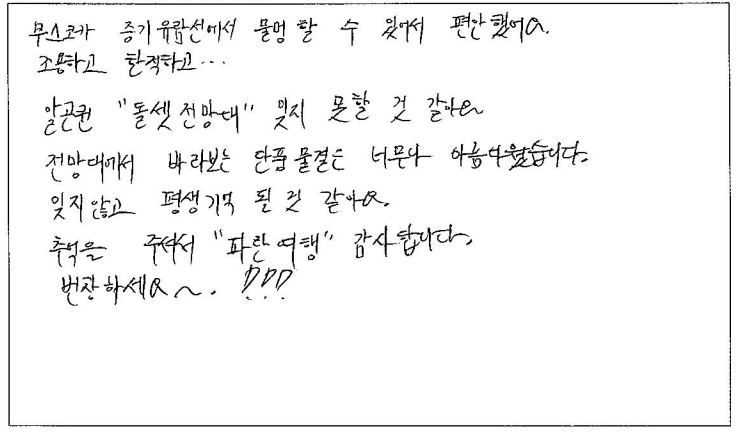 무스코카 증기유람선에서 물멍 할 수 있어서 편안했어요.
조용하고 한적하고...
알곤퀸 "돌셋 전망대" 잊지 못할 것 같아요
전망대에서 바라보는 단풍물결은 너무나 아름다웠습니다.
잊지않고 평생기억 될 것 같아요.
추억을 주셔서 "파란여행" 감사합니다.
번창하세요~. !!!